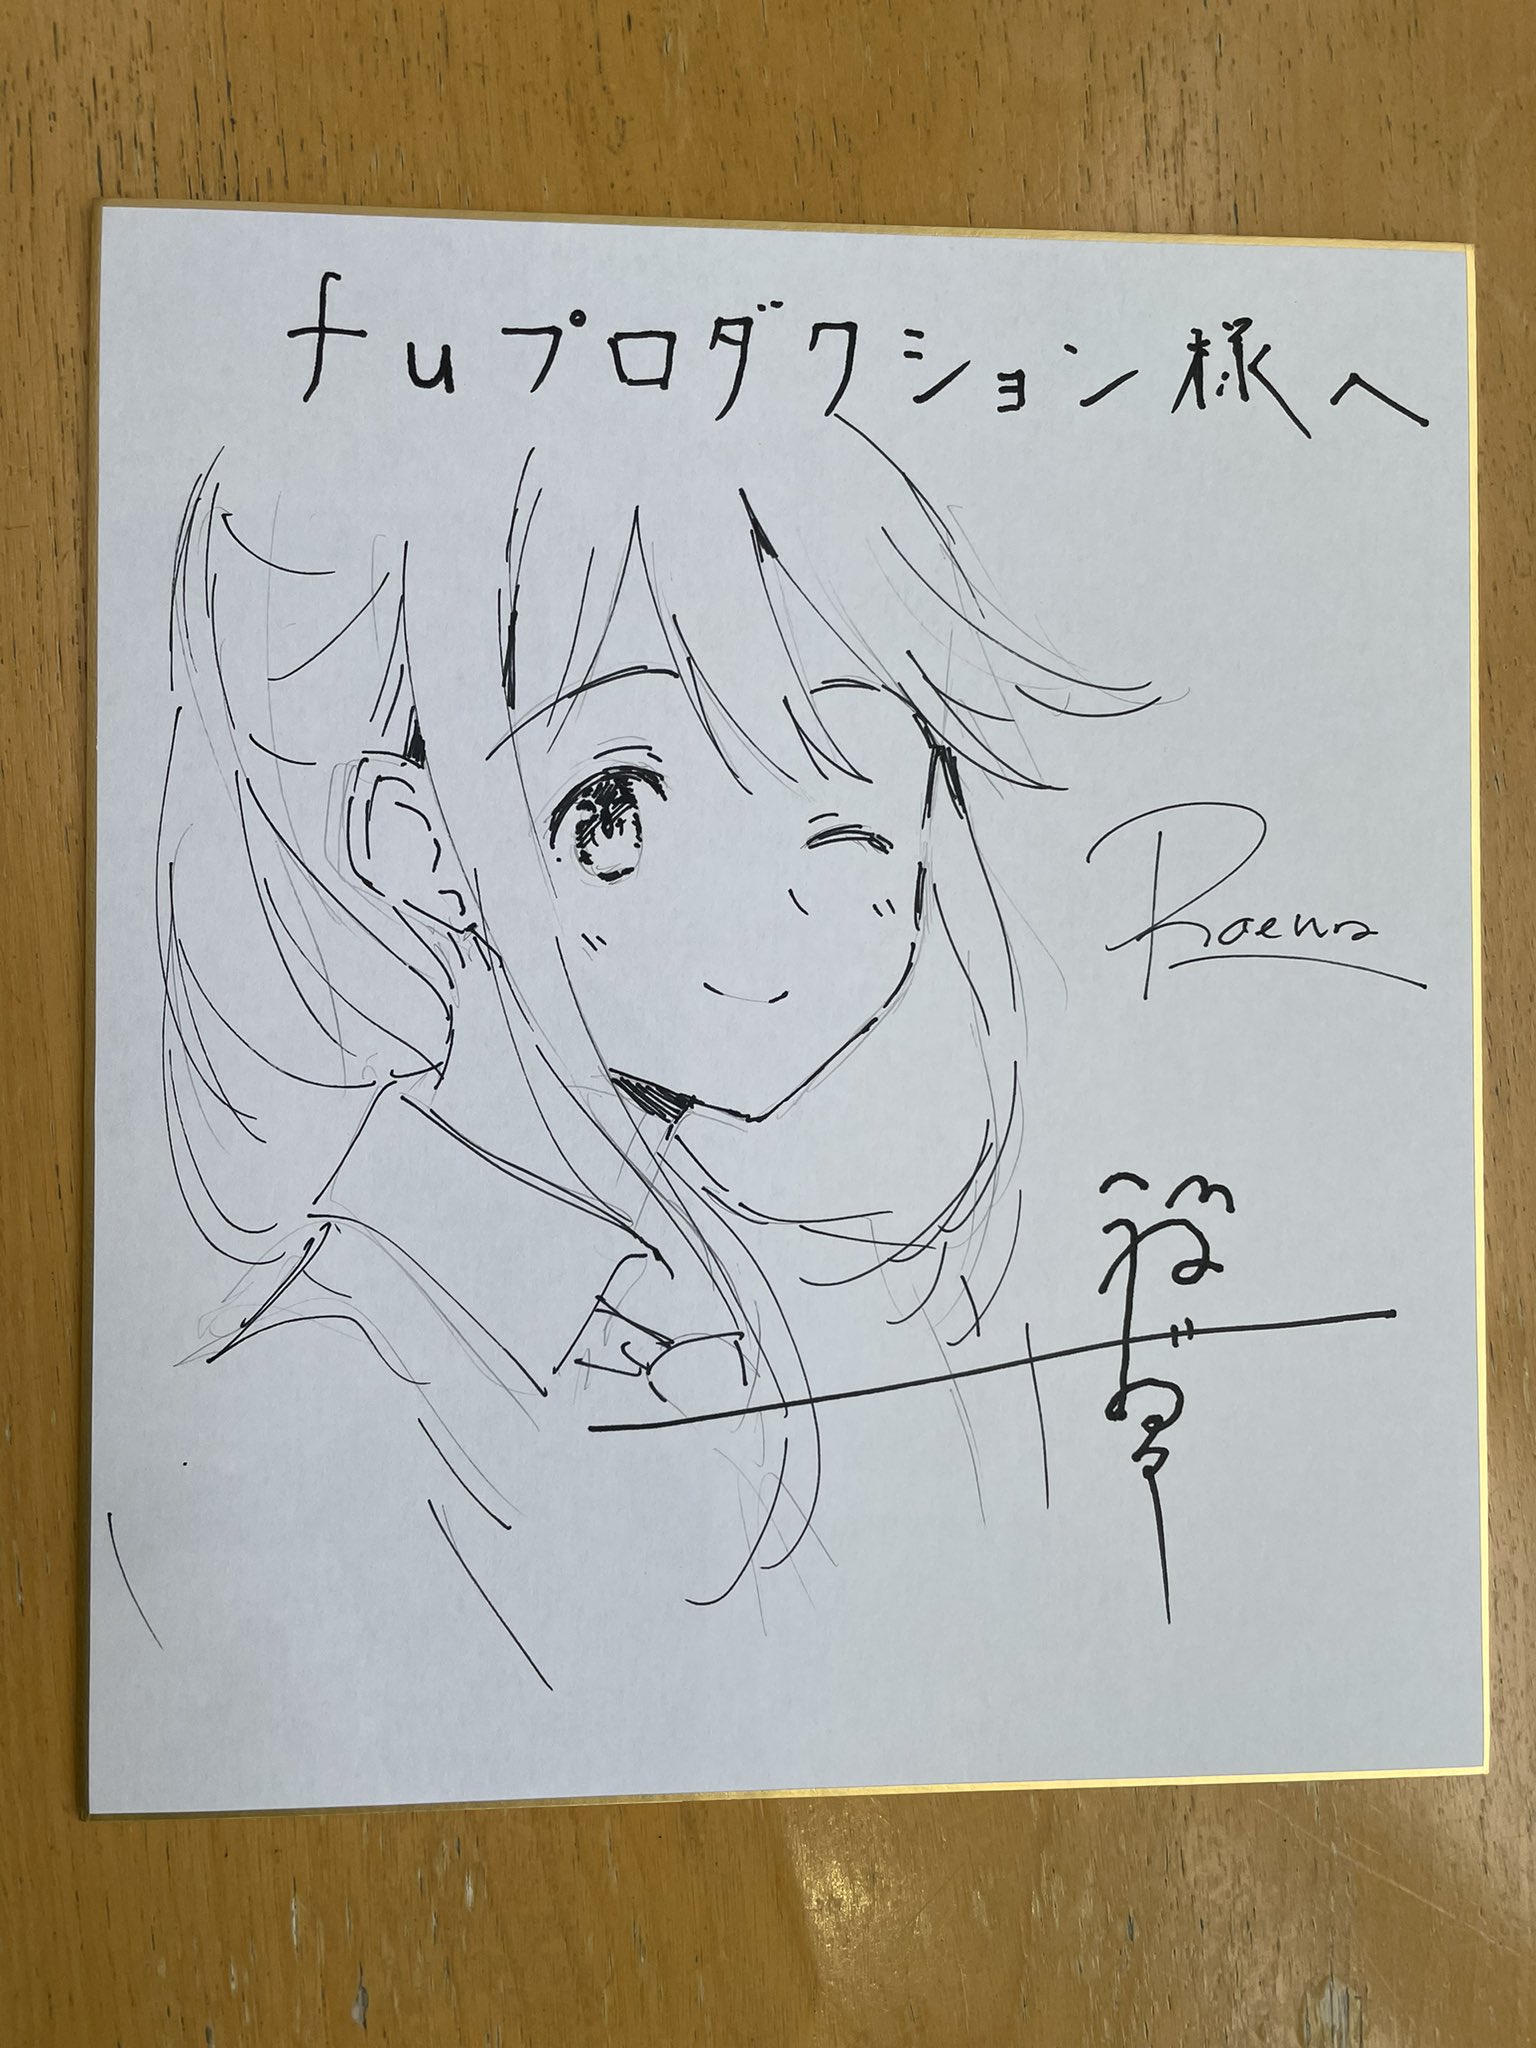 fuプロダクション様へ
Raena